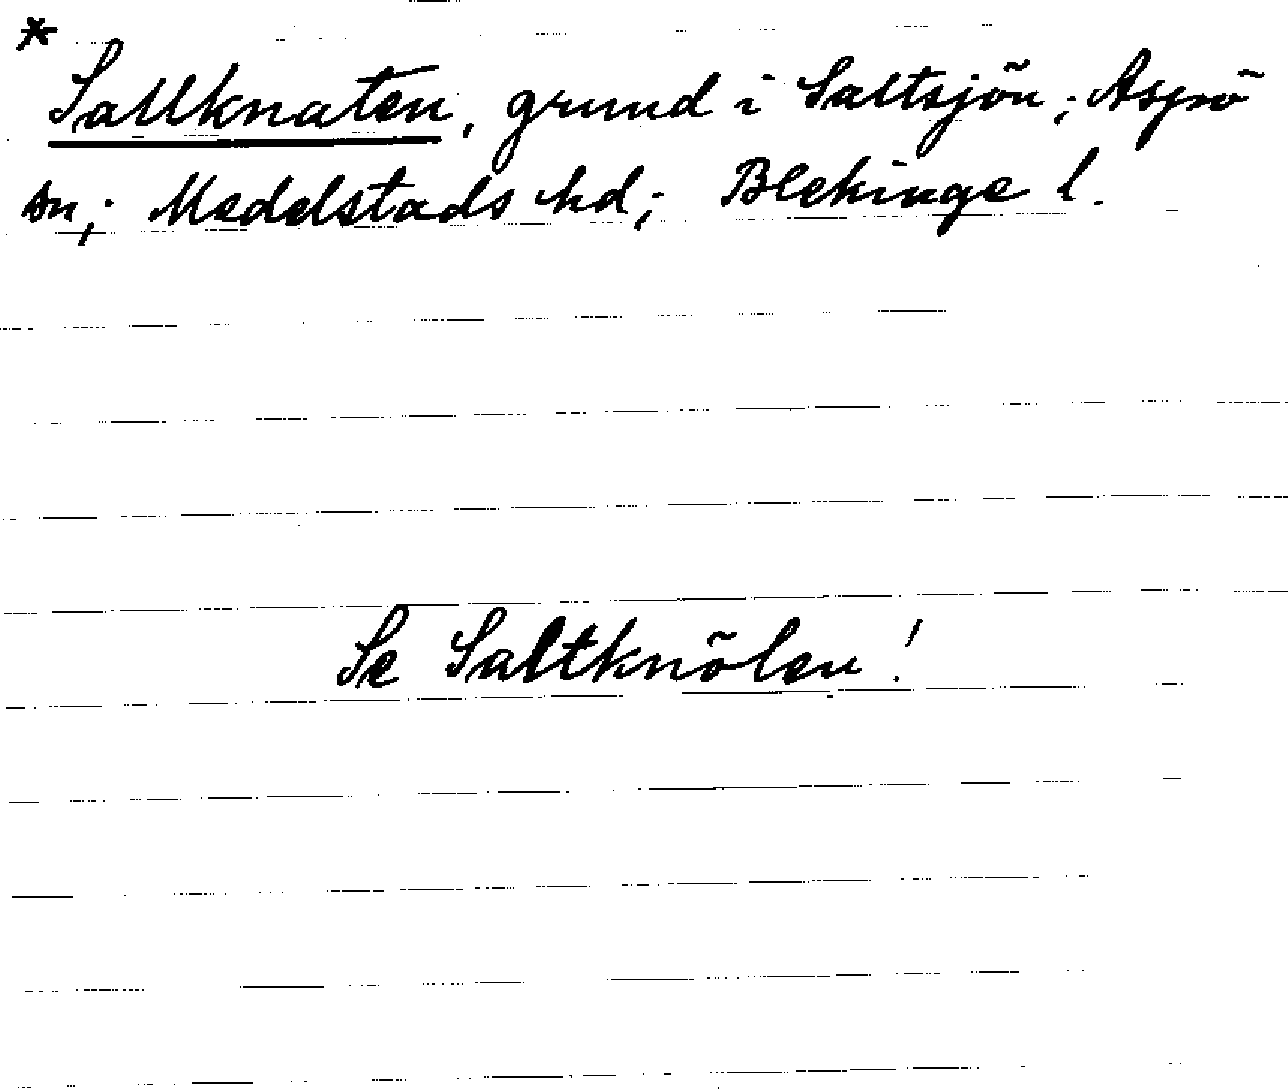 * Saltknaten, grund i Saltsjön; Aspö
sn; Medelstads hd; Blekinge l.
Se Saltknölen!